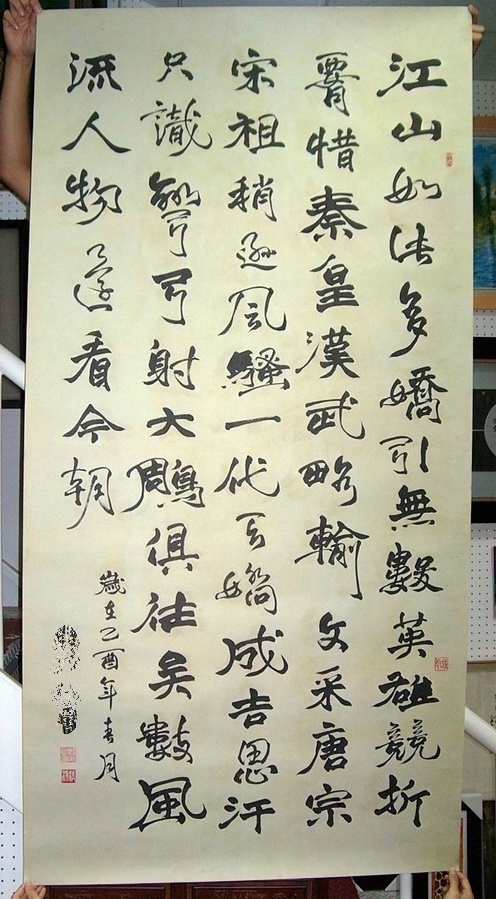 江山如此多嬌引無數英雄競折
腰惜秦皇漢武略輸文采唐宗
宋祖稍遜風騷一代天嬌成吉思汗
只識彎弓射大鵰俱往矣數風
流人物還看今朝
歲在乙酉年春月